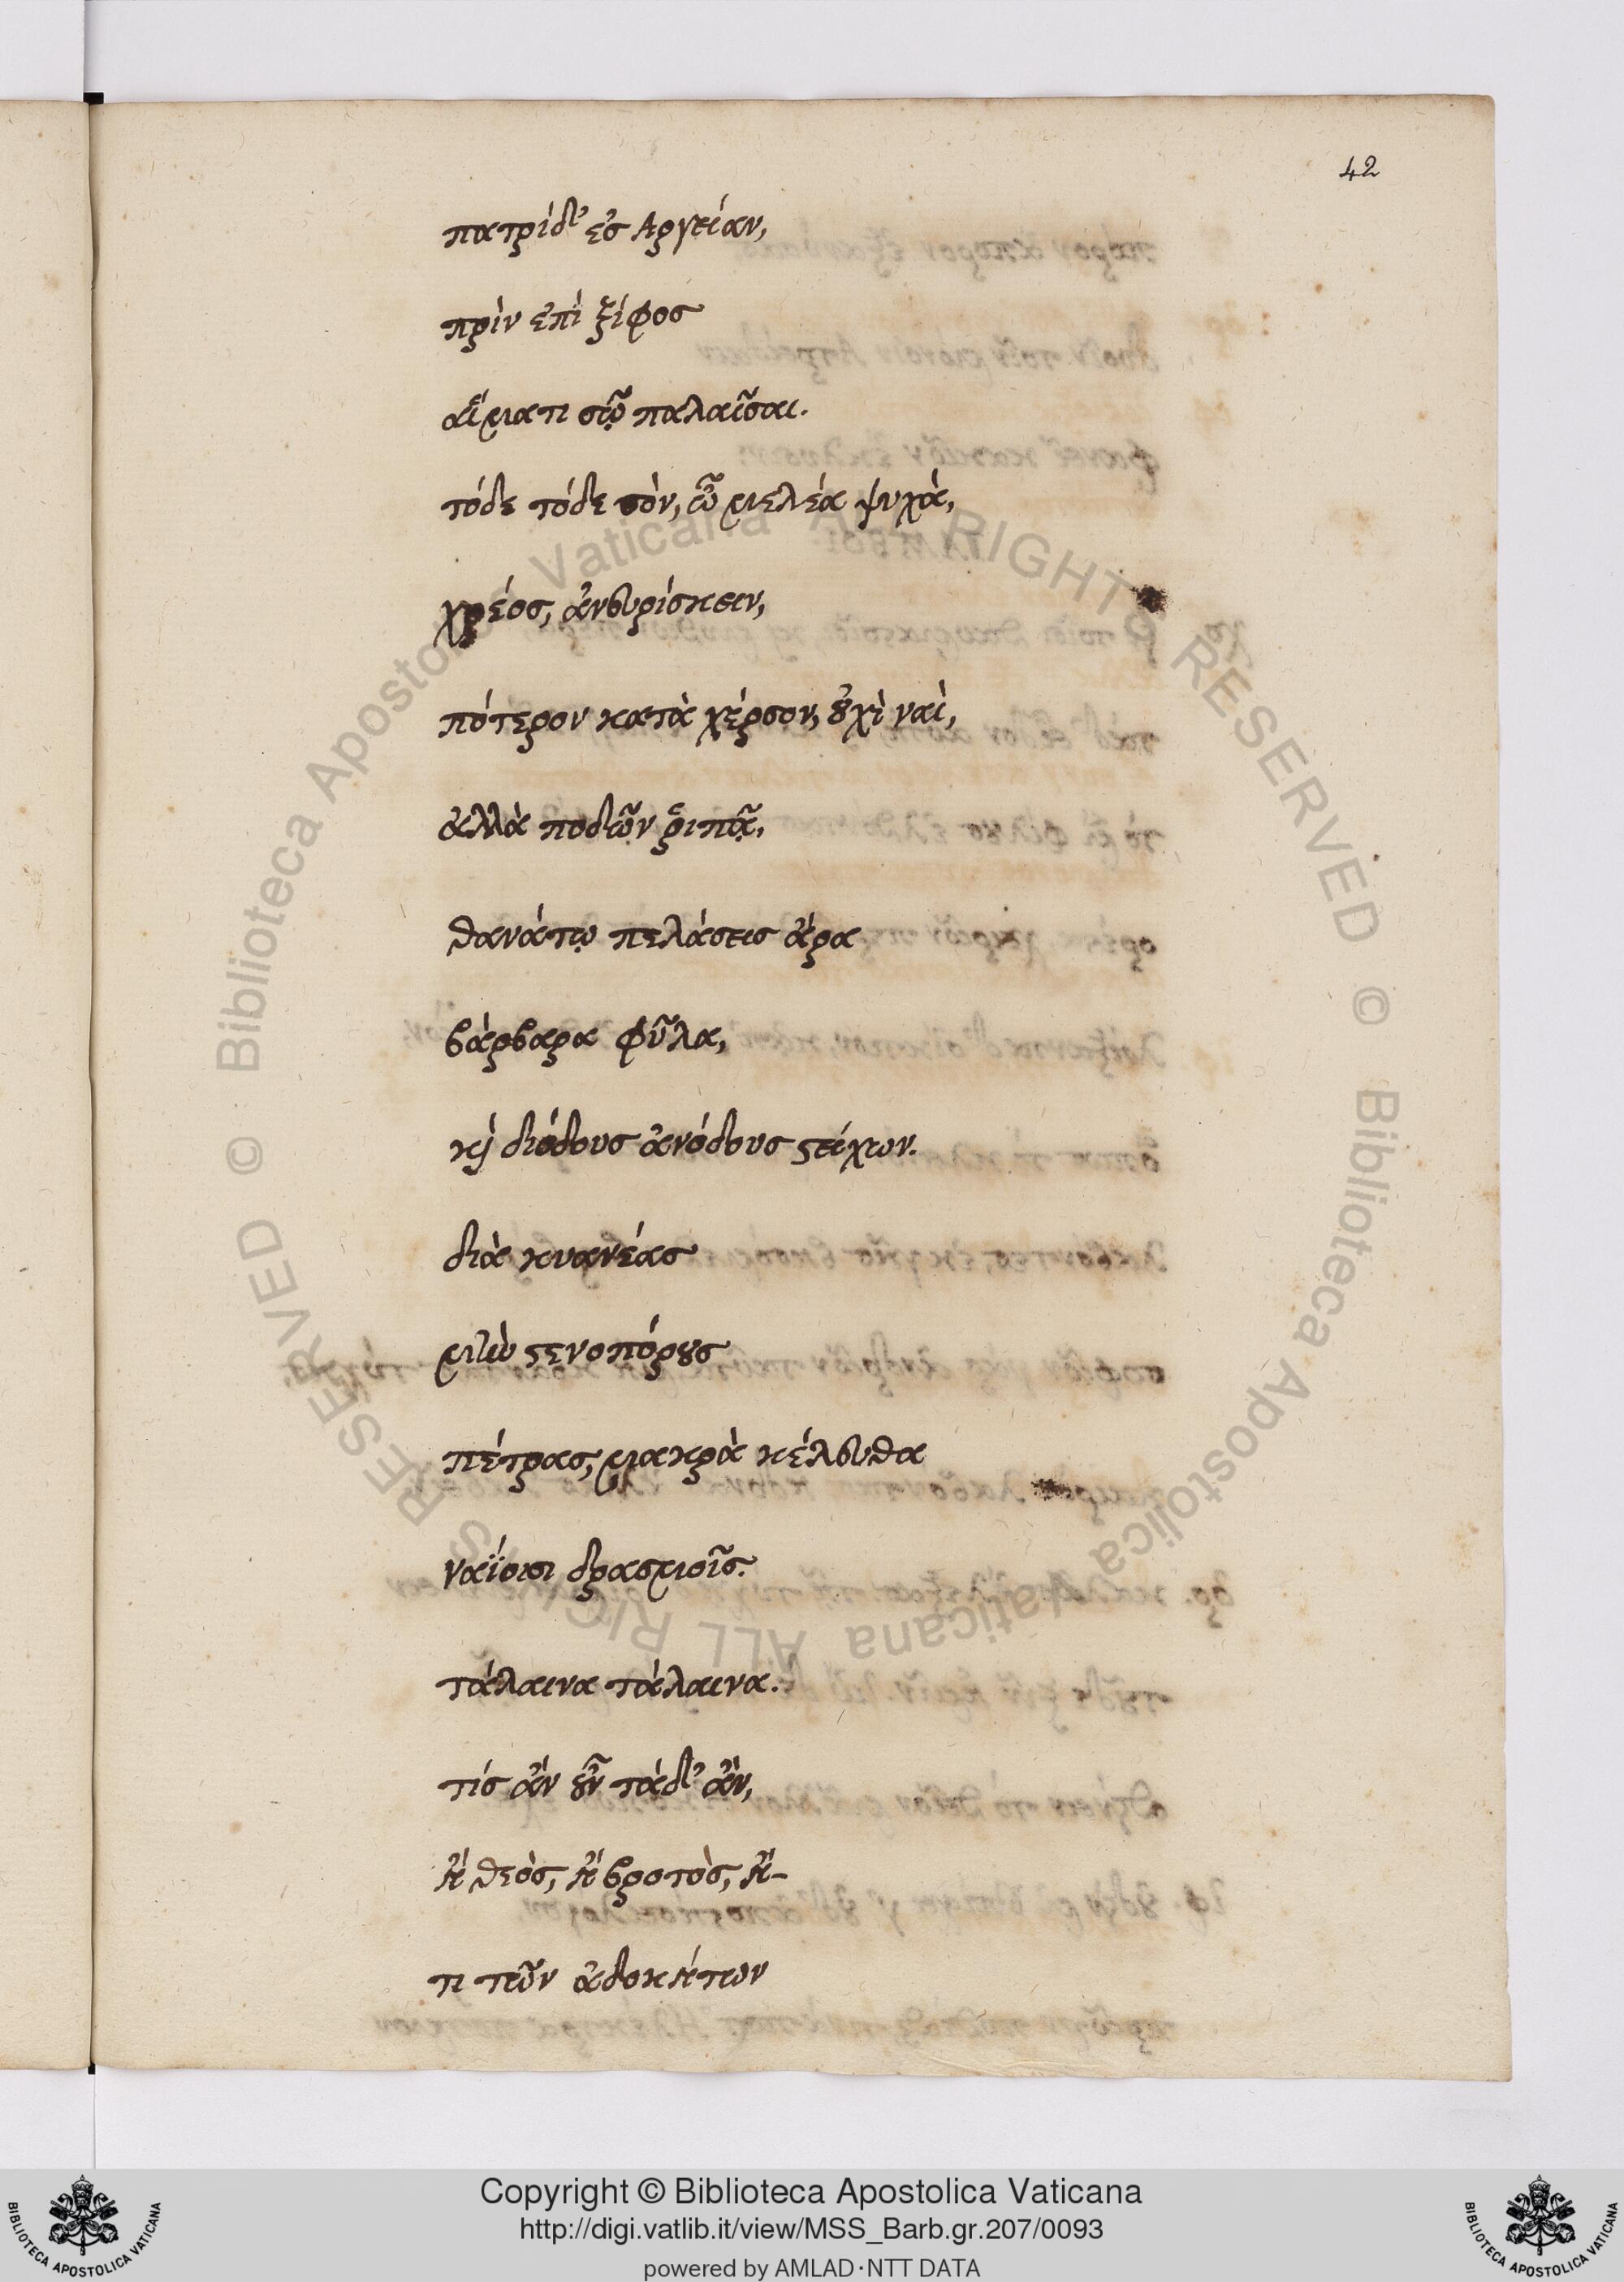 42
πατρίδ' ἐσ Αργείαν,
πρὶν ἐπὶ ξίφοσ
αἵματι σῷ παλαῖσαι.
τόδε τόδε σὸν, ὦ μελέα ψυχὰ,
χρέοσ, ἀνευρίσκειν,
πότερον κατὰ χέρσον, οὐχὶ ναὶ,
ἀλλὰ ποδῶν ῥιπᾷ,
θανάτῳ πελάσεισ ἄρα
βάρβαρα φῦλα,
κὶ διόδουσ ἀνόδουσ στείχων.
διὰ κυανέασ
μὴν στενοπόρουσ
πέτρασ, μακρὰ κέλευθα
ναΐοισι δρασμοῖσ.
τάλαινα τάλαινα.
τίσ ἂν οὖν τάδ' ἂν,
ἢ θεὸσ, ἢ βροτὸσ, ἤ-
τι τῶν ἀδοκήτων
© Biblioteca Apostolica Vaticana ALL RIGHTS RESERVED © Biblioteca Apostolica Vaticana ALL RIGHTS RESERVED
Copyright © Biblioteca Apostolica Vaticana
http://digi.vatlib.it/view/MSS_Barb.gr.207/0093
powered by AMLAD·NTT DATA
BIBLIOTECA APOSTOLICA VATICANA
BIBLIOTECA APOSTOLICA VATICANA